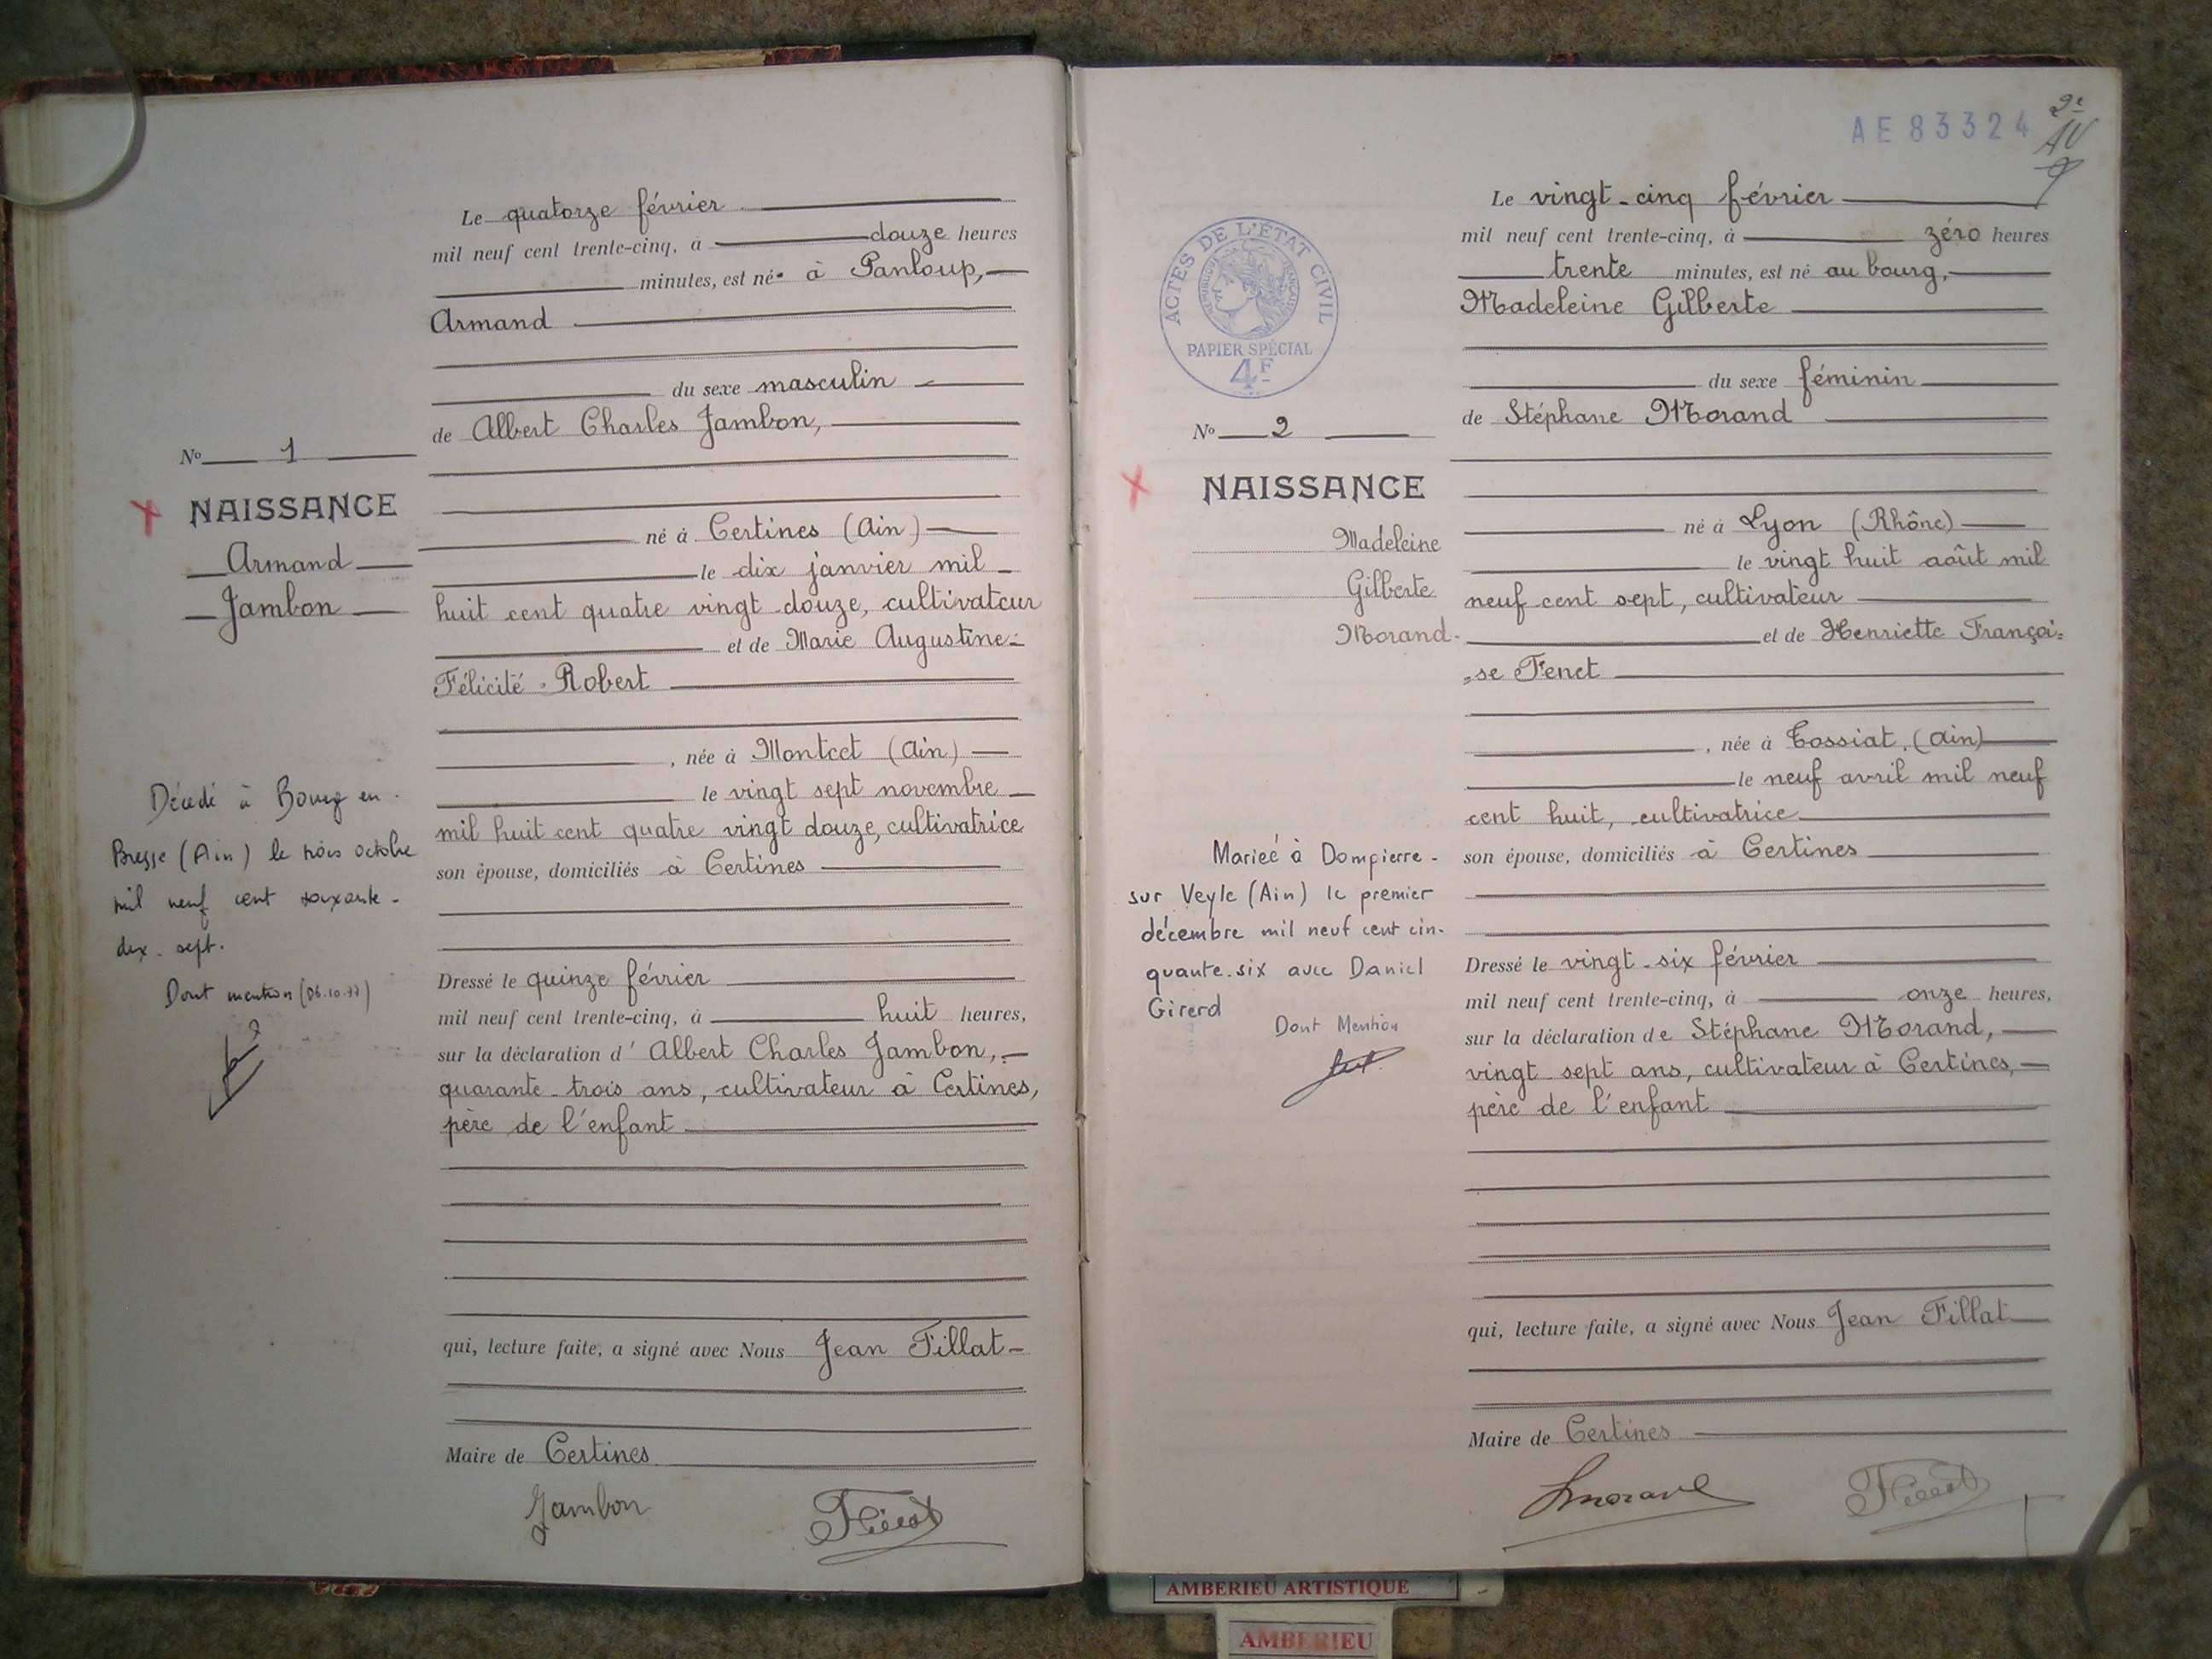 Le quatorze février
mil neuf cent trente-cinq, à douze heures
minutes, est né à Panloup,
Armand
du sexe masculin
de Albert Charles Jambon,
No 1
NAISSANCE
Armand
Jambon
né à Certines (Ain)
le dix janvier mil
huit cent quatre vingt douze, cultivateur
et de Marie Augustine
Félicité Robert
, née à Montcet (Ain)
le vingt sept novembre
mil huit cent quatre vingt douze, cultivatrice
son épouse, domiciliés à Certines
Décédé à Bourg en-
Bresse (Ain) le trois octobre
mil neuf cent soixante-
dix-sept.
Dont mention (06.10.77)
Dressé le quinze février
mil neuf cent trente-cinq, à huit heures,
sur la déclaration d' Albert Charles Jambon,
quarante-trois ans, cultivateur à Certines,
père de l'enfant
qui, lecture faite, a signé avec Nous Jean Fillat
Maire de Certines
Jambon
AE83324
2e
Le vingt-cinq février
mil neuf cent trente-cinq, à zéro heures
trente minutes, est né au bourg,
Madeleine Gilberte
du sexe féminin
de Stéphane Morand
ACTES DE L'ÉTAT CIVIL
RÉPUBLIQUE FRANÇAISE
PAPIER SPÉCIAL
4F
No 2
NAISSANCE
Madeleine
Gilberte
Morand
né à Lyon (Rhône)
le vingt huit août mil
neuf cent sept, cultivateur
et de Henriette Françoi=
=se Fenet
, née à Tossiat, (Ain)
le neuf avril mil neuf
cent huit, cultivatrice
son épouse, domiciliés à Certines
Mariée à Dompierre-
sur Veyle (Ain) le premier
décembre mil neuf cent cin-
quante-six avec Daniel
Girerd
Dont Mention
Dressé le vingt-six février
mil neuf cent trente-cinq, à onze heures,
sur la déclaration de Stéphane Morand,
vingt-sept ans, cultivateur à Certines,
père de l'enfant
qui, lecture faite, a signé avec Nous Jean Fillat
Maire de Certines
Smorand
AMBERIEU ARTISTIQUE
AMBERIEU